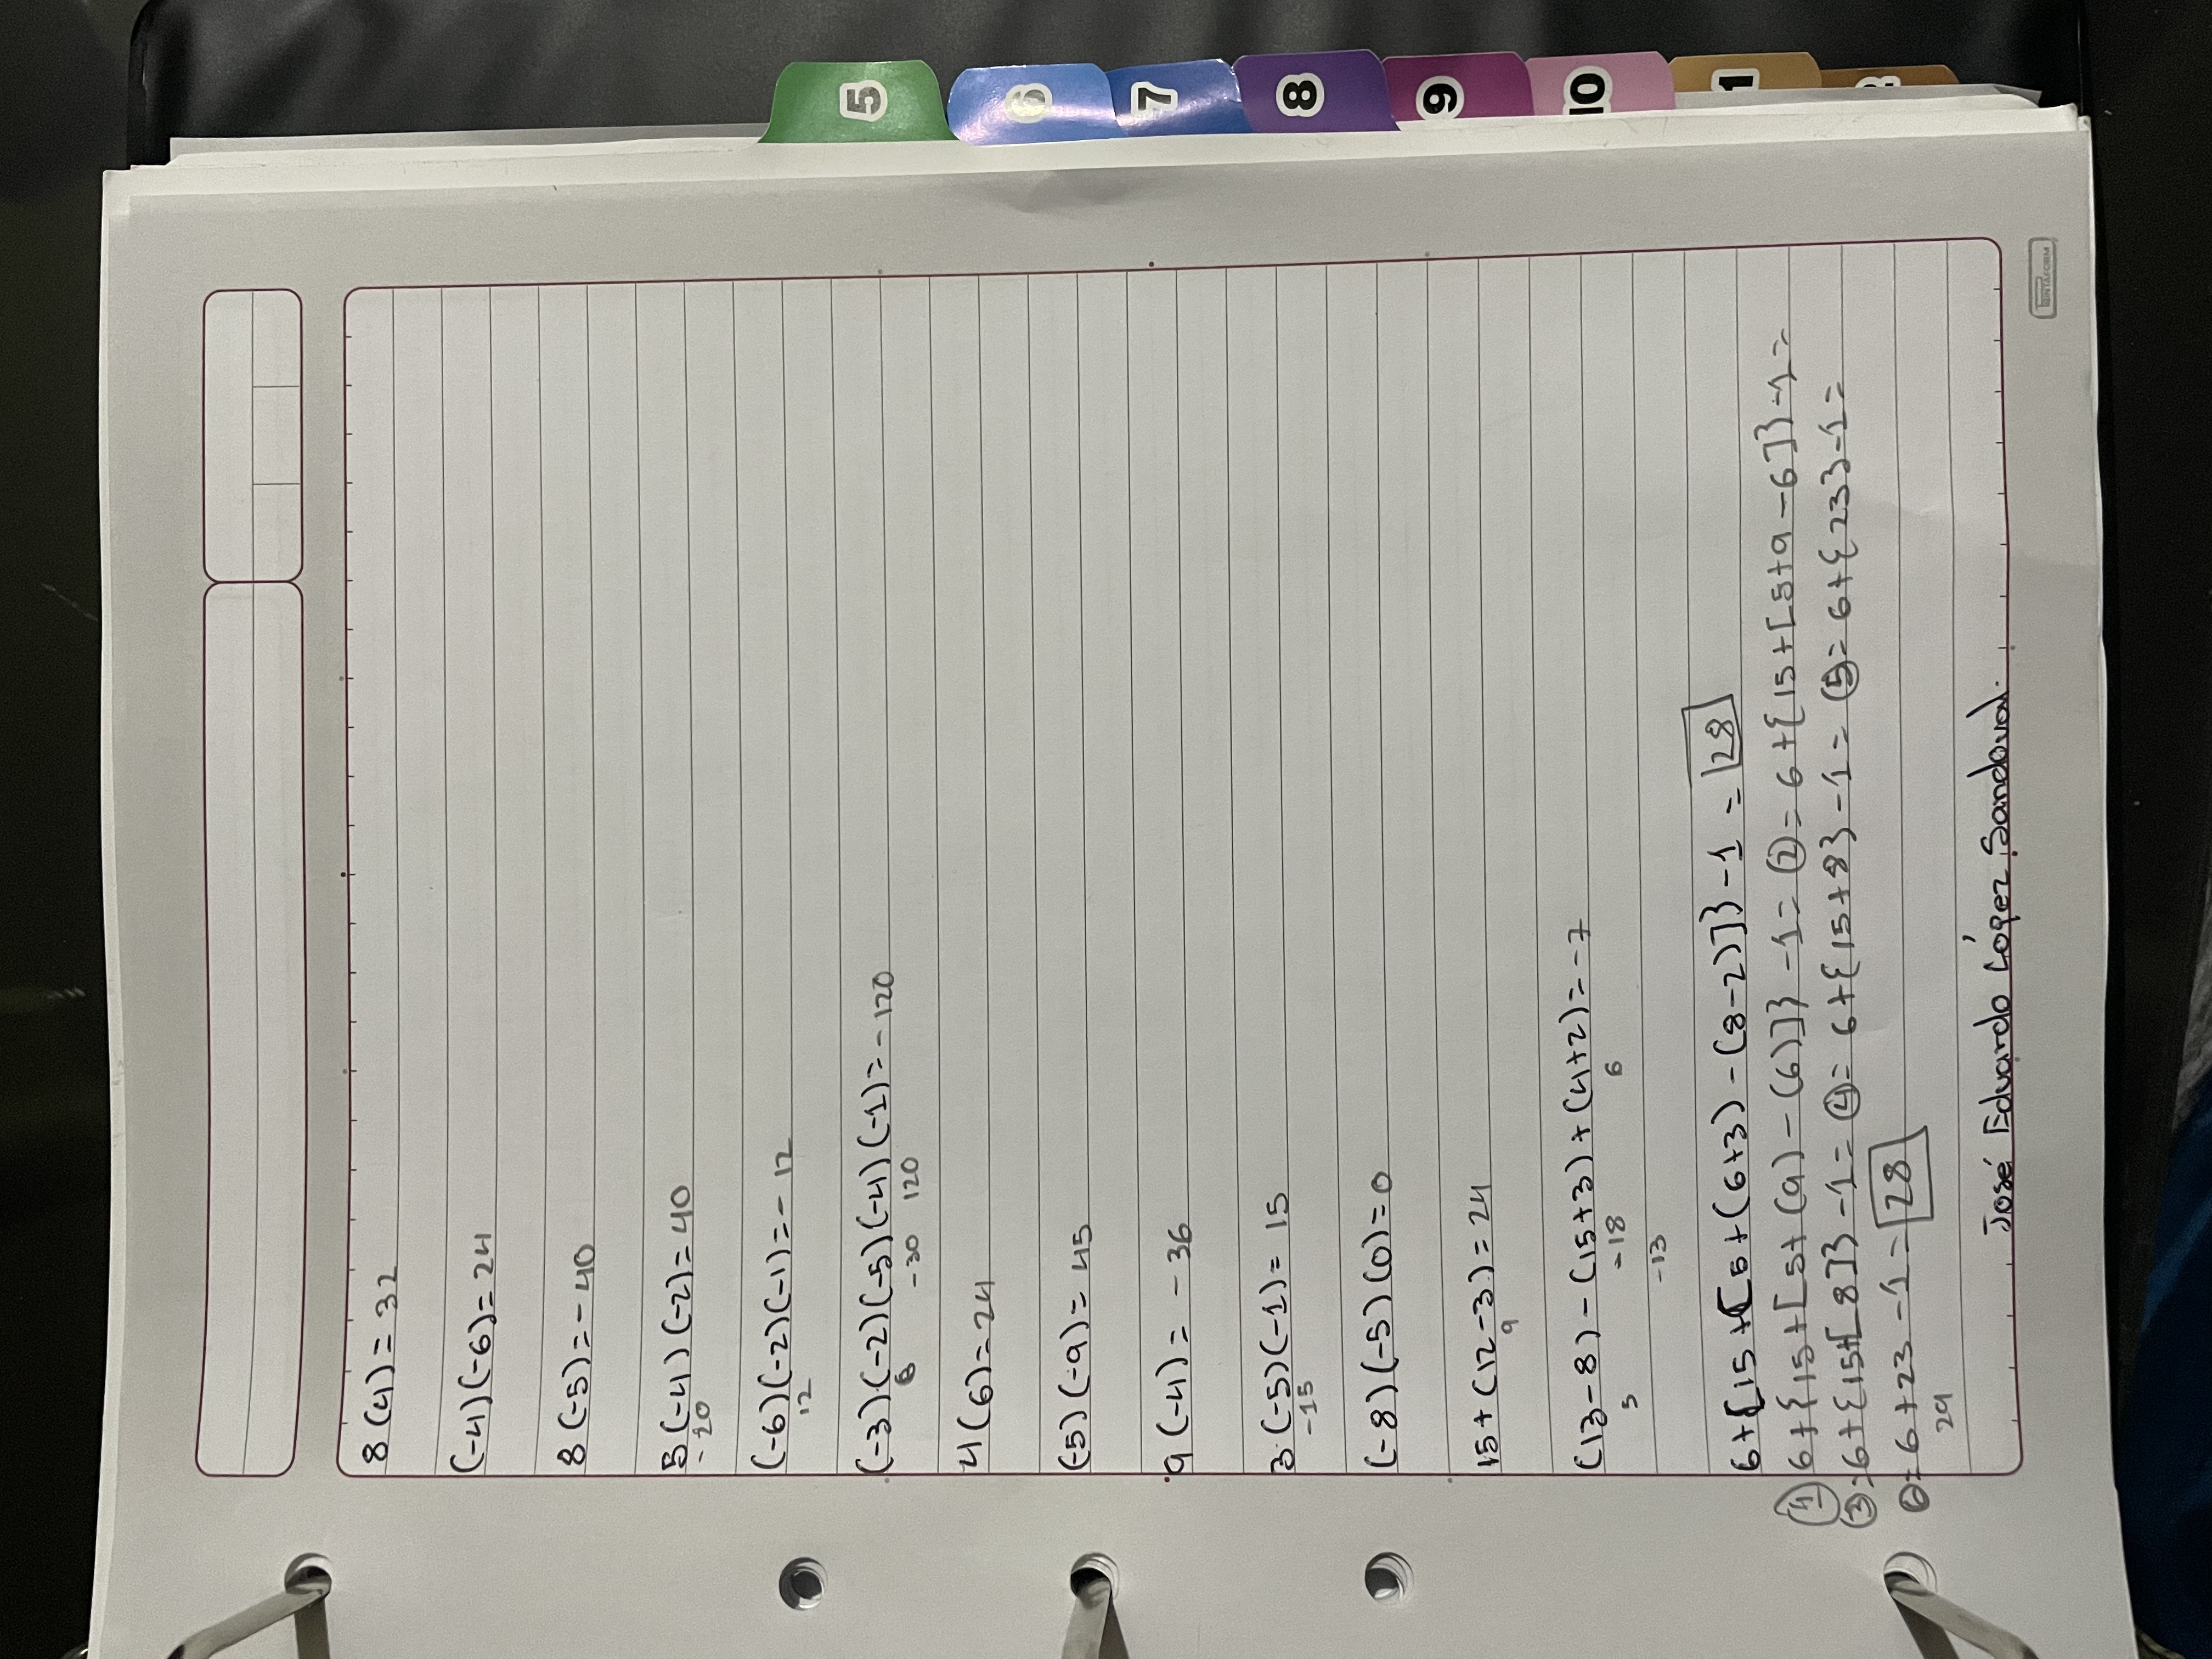 8(4)=32
(-4)(-6)=24
8(-5)=-40
5(-4)(-2)=40
-20
(-6)(-2)(-1)=-12
12
(-3)(-2)(-5)(-4)(-1)=-120
6 -30 120
4(6)=24
(-5)(-9)=45
9(-4)=-36
3·(-5)(-1)=15
-15
(-8)(-5)(0)=0
15+(12-3)=24
9
(13-8)-(15+3)+(4+2)=-7
5 -18 6
-13
6+{15+[5+(6+3)-(8-2)]}-1=28
① 6+{15+[5+(9)-(6)]}-1= ②=6+{15+[5+9-6]}-1=
③=6+{15+[8]}-1= ④=6+{15+8}-1= ⑤=6+{23}-1=
⑥=6+23-1=28
29
José Eduardo López Sandoval.
5
6
7
8
9
10
1
PRINTAFORM